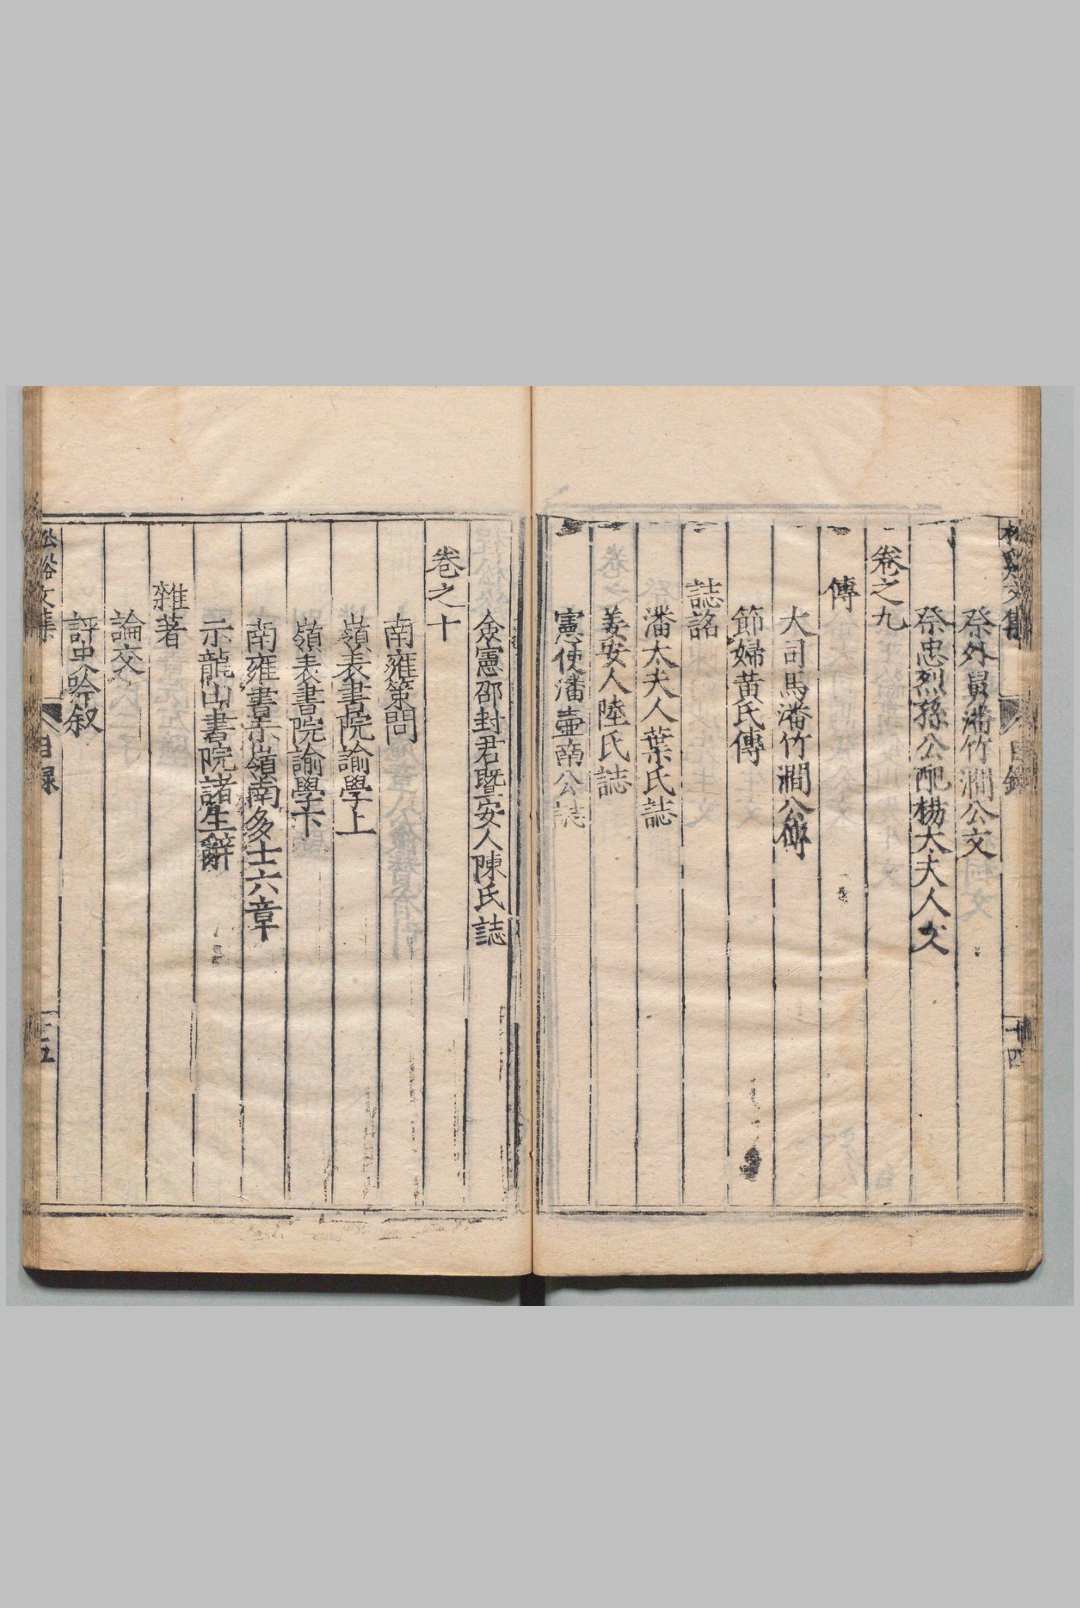 祭外舅潘竹澗公文
祭忠烈孫公配楊太夫人文
卷之九
傳
大司馬潘竹澗公傳
節婦黃氏傳
誌銘
潘太夫人葉氏誌
姜安人陸氏誌
憲使潘壺南公誌
僉憲邵封君暨安人陳氏誌
卷之十
南雍策問
嶺表書院諭學上
嶺表書院諭學下
南雍書示嶺南多士六章
示龍山書院諸生辭
雜著
論交
評史吟叙
文集
目録